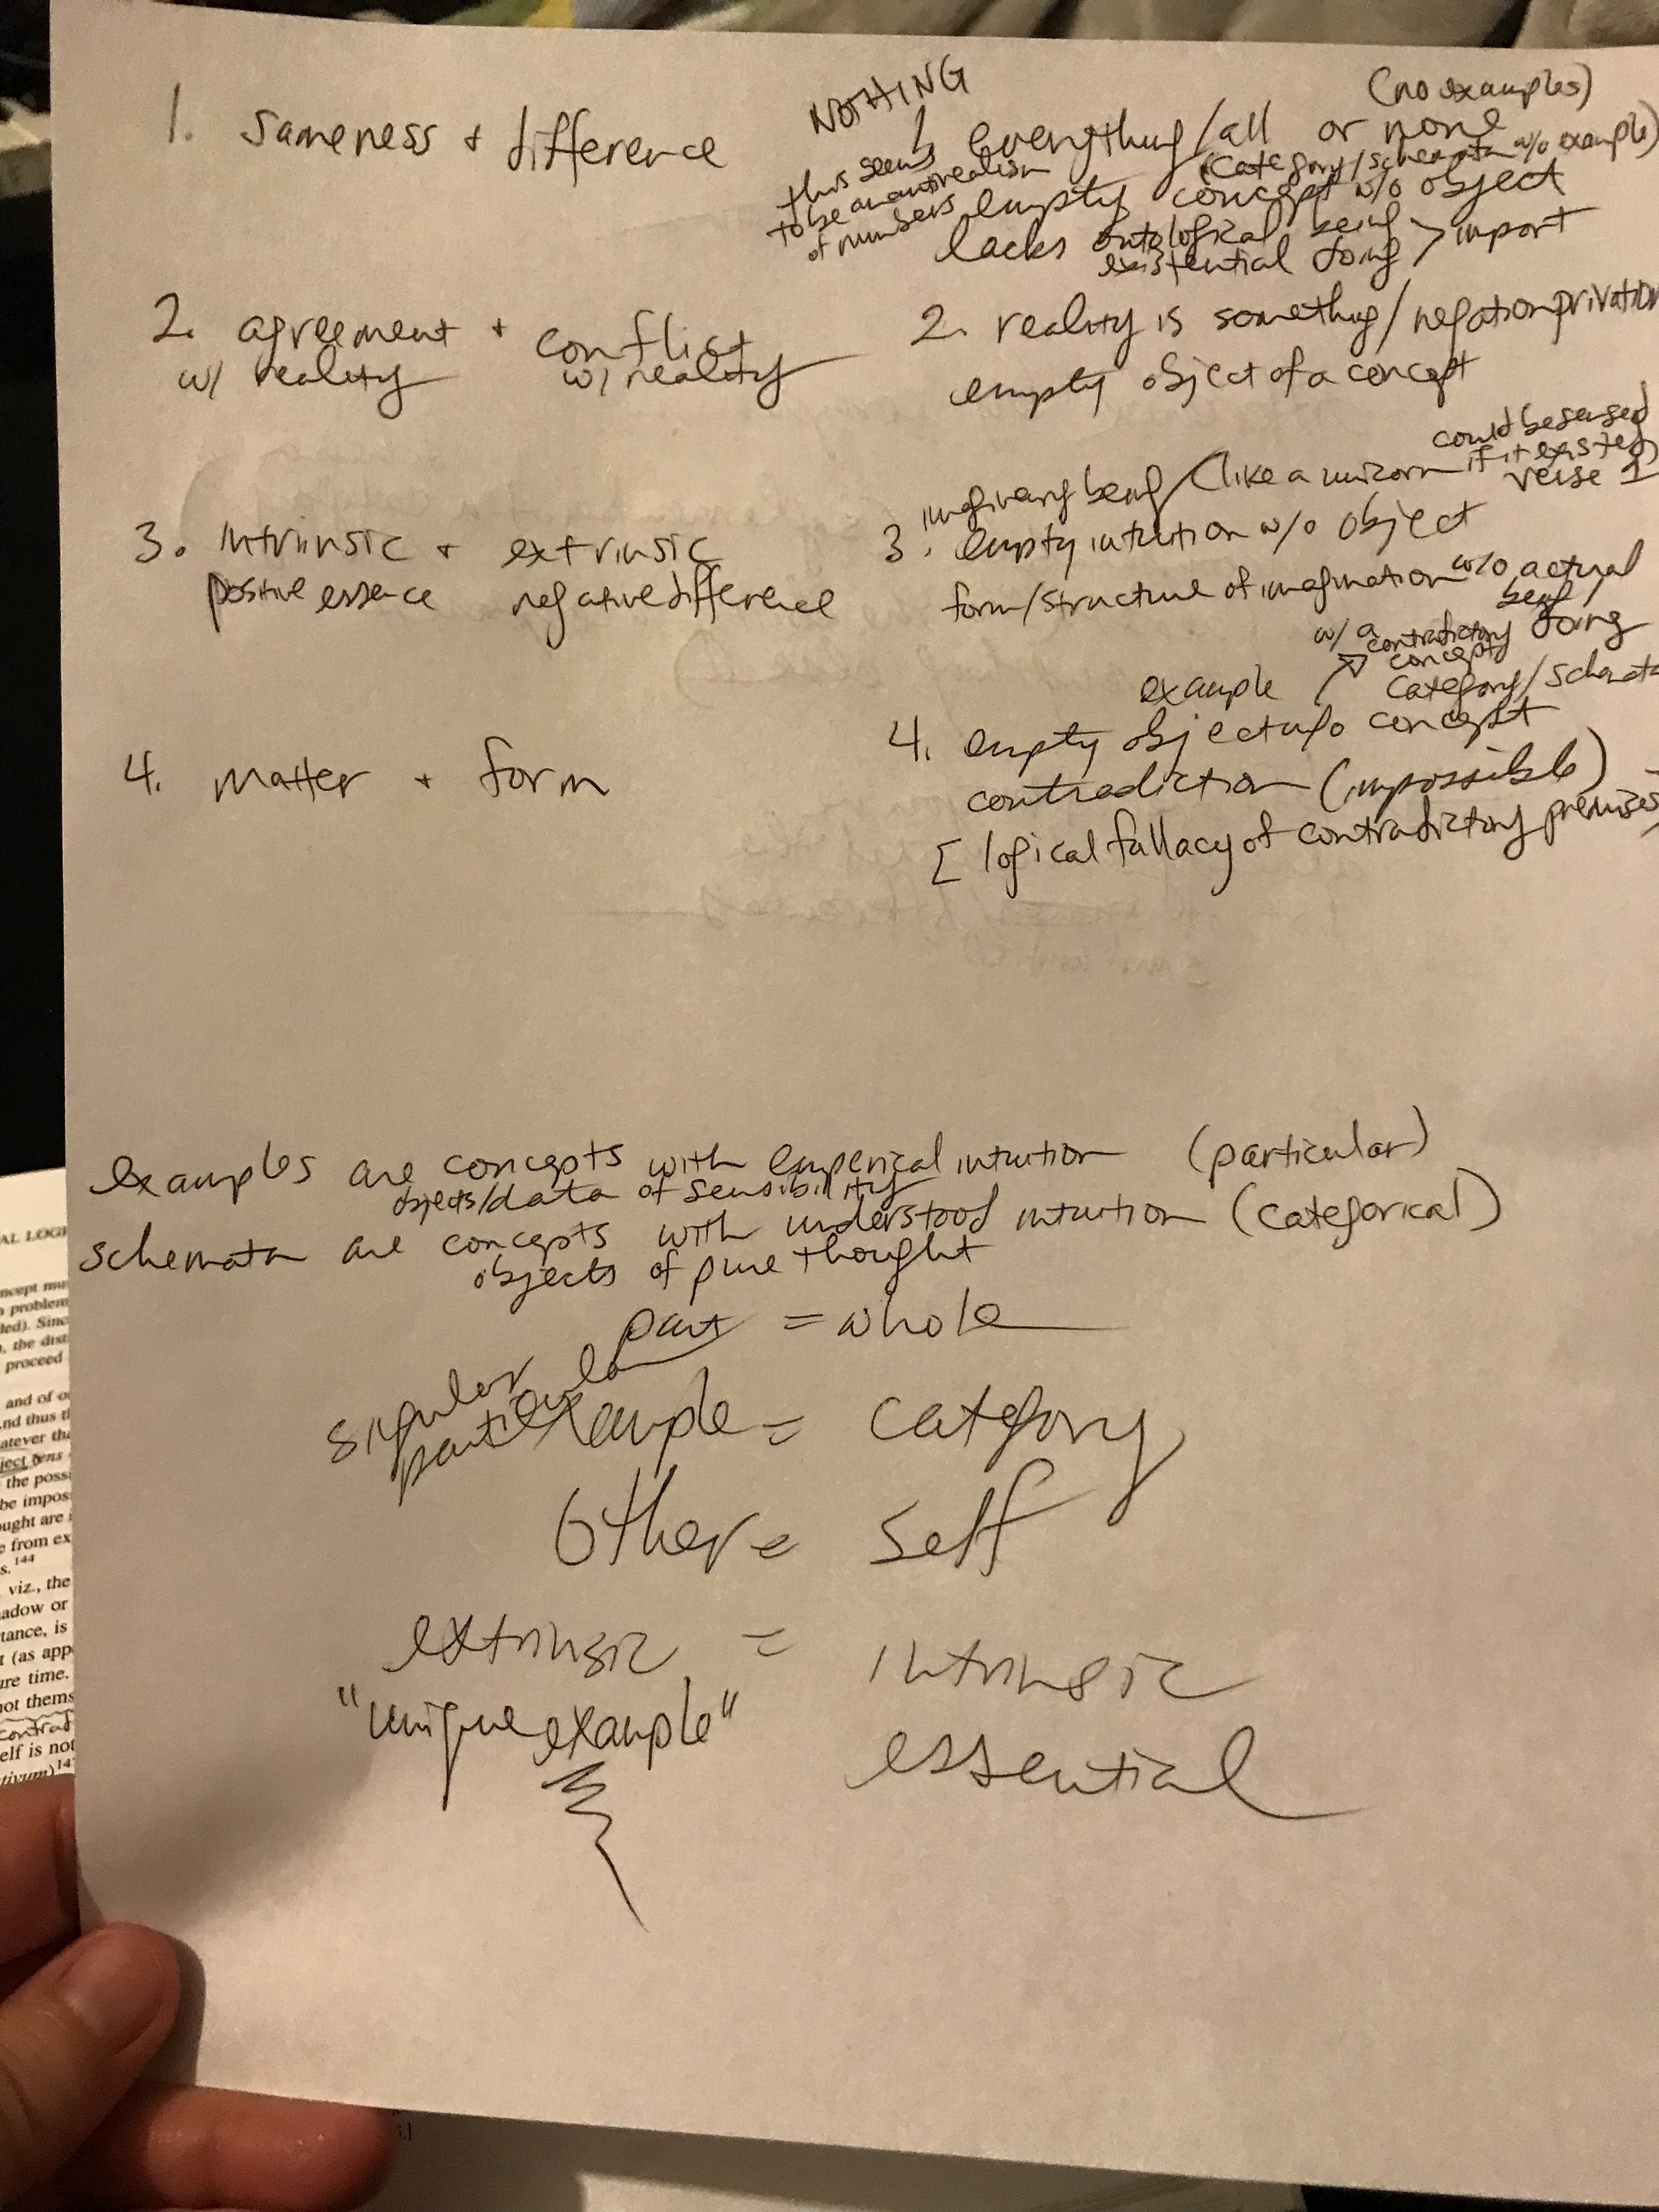 1. Sameness + difference
NOTHING
(no examples)
1. everything/all or none
(category/schemata w/o example)
this seems
to be an antirealism
of numbers
empty concept w/o object
lacks ontological being > import
existential doing
2. agreement + conflict
w/ reality w/ reality
2. reality is something/negation privation
empty object of a concept
3. intrinsic + extrinsic
positive essence negative difference
could be sensed
imaginary being (like a unicorn if it existed)
verse 1
3. empty intuition w/o object
form/structure of imagination w/o actual
being
doing
w/ a contradictory
concept
example category/schemata
4. matter + form
4. empty object w/o concept
contradiction (impossible)
[logical fallacy of contradictory premises
examples are concepts with emperical intuition (particular)
objects/data of sensibility
schemata are concepts with understood intuition (categorical)
objects of pure thought
part = whole
singular
particular
example = category
Other = Self
extrinsic = intrinsic
"unique example" essential
AL LOGI
ncept mus
problem
led). Sinc
, the dist
proceed
and of o
nd thus t
atever tha
ject ens
the poss
be impos
ought are
e from ex
s.144
viz., the
adow or
tance, is
t (as app
ure time.
not thems
contrad
elf is not
tivum)14